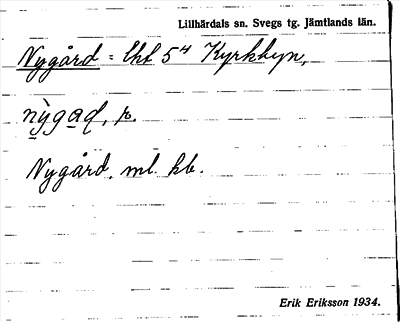 Lillhärdals sn. Svegs tg. Jämtlands län.
Nygård = lht 5⁴ Kyrkbyn,
nỳgaḍ, p.
Nygård, ml. kb.
Erik Eriksson 1934.